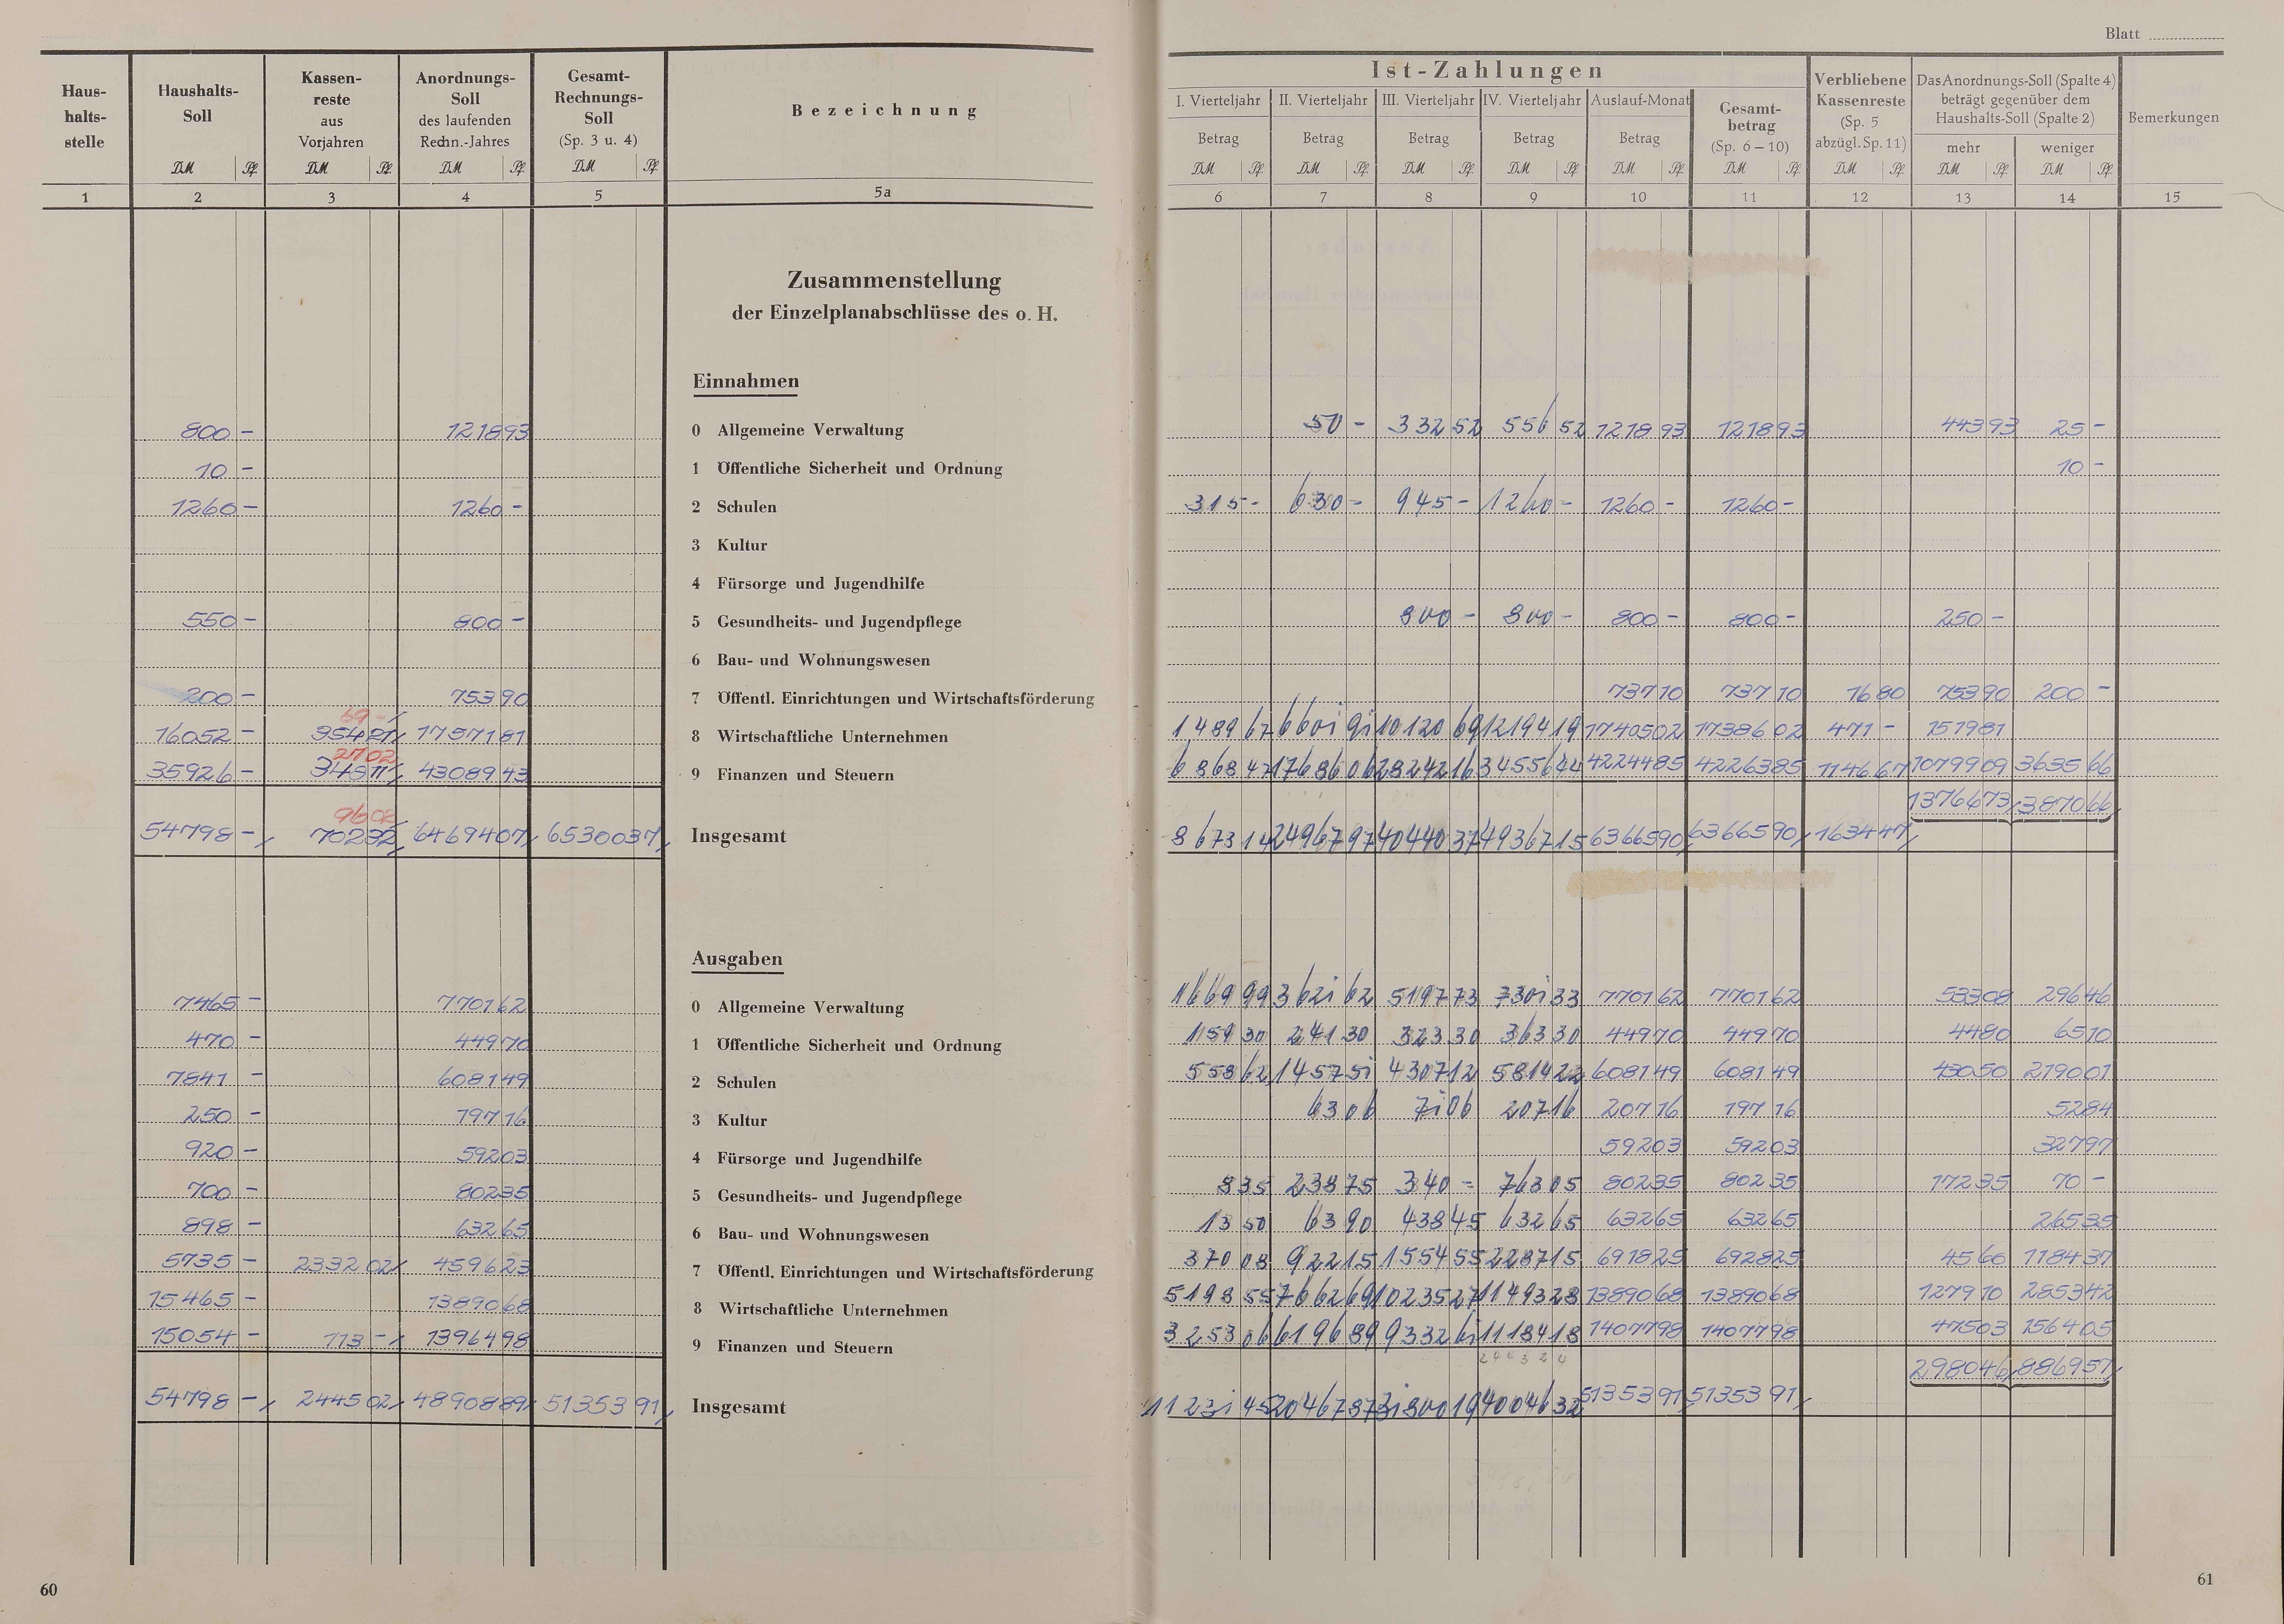 Blatt
Haus- halts- stelle | Haushalts- Soll | Kassen- reste aus Vorjahren | Anordnungs- Soll des laufenden Rechn.-Jahres | Gesamt- Rechnungs- Soll (Sp. 3 u. 4) | Bezeichnung | Ist-Zahlungen | Verbliebene Kassenreste (Sp. 5 abzügl. Sp. 11) | Das Anordnungs-Soll (Spalte 4) beträgt gegenüber dem Haushalts-Soll (Spalte 2) | Bemerkungen
I. Vierteljahr | II. Vierteljahr | III. Vierteljahr | IV. Vierteljahr | Auslauf-Monat | Gesamt- betrag (Sp. 6–10)
Betrag | Betrag | Betrag | Betrag | Betrag | mehr | weniger
DM | Pf. | DM | Pf. | DM | Pf. | DM | Pf. | DM | Pf. | DM | Pf. | DM | Pf. | DM | Pf. | DM | Pf. | DM | Pf. | DM | Pf. | DM | Pf. | DM | Pf.
1 | 2 | 3 | 4 | 5 | 5a | 6 | 7 | 8 | 9 | 10 | 11 | 12 | 13 | 14 | 15
Zusammenstellung
der Einzelplanabschlüsse des o. H.
Einnahmen
800 – | 1218 93 | 0 Allgemeine Verwaltung | 50 – | 332 52 | 556 52 | 1218 93 | 1218 93 | 443 93 | 25 –
10 – | 1 Öffentliche Sicherheit und Ordnung | 10 –
1260 – | 1260 – | 2 Schulen | 315 – | 630 – | 945 – | 1260 – | 1260 – | 1260 –
3 Kultur
4 Fürsorge und Jugendhilfe
550 – | 800 – | 5 Gesundheits- und Jugendpflege | 800 – | 800 – | 800 – | 800 – | 250 –
6 Bau- und Wohnungswesen
200 – | 753 90 | 7 Öffentl. Einrichtungen und Wirtschaftsförderung | 737 10 | 737 10 | 16 80 | 753 90 | 200 –
69 –
16052 – | 354 21 | 17571 81 | 8 Wirtschaftliche Unternehmen | 1489 67 | 6601 91 | 10120 69 | 12194 19 | 17405 02 | 17386 02 | 471 – | 1519 81
27 02
35926 – | 348 11 | 43089 43 | 9 Finanzen und Steuern | 6868 47 | 17686 06 | 28242 16 | 34556 44 | 42244 85 | 42263 85 | 1146 67 | 10799 09 | 3635 66
96 02 | 13766 73 | 3870 66
54798 – | 702 32 | 64694 07 | 65300 37 | Insgesamt | 8673 14 | 24967 97 | 40440 37 | 49367 15 | 63665 90 | 63665 90 | 1634 47
Ausgaben
7465 – | 7701 62 | 0 Allgemeine Verwaltung | 1669 99 | 3621 62 | 5197 73 | 7301 33 | 7701 62 | 7701 62 | 533 08 | 296 46
470 – | 449 70 | 1 Öffentliche Sicherheit und Ordnung | 159 30 | 241 30 | 323 30 | 363 30 | 449 70 | 449 70 | 44 80 | 65 10
7841 – | 6081 49 | 2 Schulen | 558 62 | 1457 51 | 4307 12 | 5814 22 | 6081 49 | 6081 49 | 430 50 | 2190 01
250 – | 197 16 | 3 Kultur | 63 06 | 71 06 | 207 16 | 207 16 | 197 16 | 52 84
920 – | 592 03 | 4 Fürsorge und Jugendhilfe | 592 03 | 592 03 | 327 97
700 – | 802 35 | 5 Gesundheits- und Jugendpflege | 8 35 | 238 75 | 340 – | 763 05 | 802 35 | 802 35 | 172 35 | 70 –
898 – | 632 65 | 6 Bau- und Wohnungswesen | 13 50 | 63 90 | 438 45 | 632 65 | 632 65 | 632 65 | 265 35
5735 – | 2332 02 | 4596 23 | 7 Öffentl. Einrichtungen und Wirtschaftsförderung | 370 08 | 922 15 | 1554 55 | 2287 15 | 6918 25 | 6928 25 | 45 60 | 1184 37
15465 – | 13890 68 | 8 Wirtschaftliche Unternehmen | 5198 55 | 7662 69 | 10235 27 | 11493 28 | 13890 68 | 13890 68 | 1279 10 | 2853 42
15054 – | 113 – | 13964 98 | 9 Finanzen und Steuern | 3253 06 | 6196 89 | 9332 61 | 11184 18 | 14077 98 | 14077 98 | 475 03 | 1564 05
2980 46 | 8869 57
54798 – | 2445 02 | 48908 89 | 51353 91 | Insgesamt | 11231 45 | 20467 87 | 31800 19 | 40046 32 | 51353 91 | 51353 91
60
61